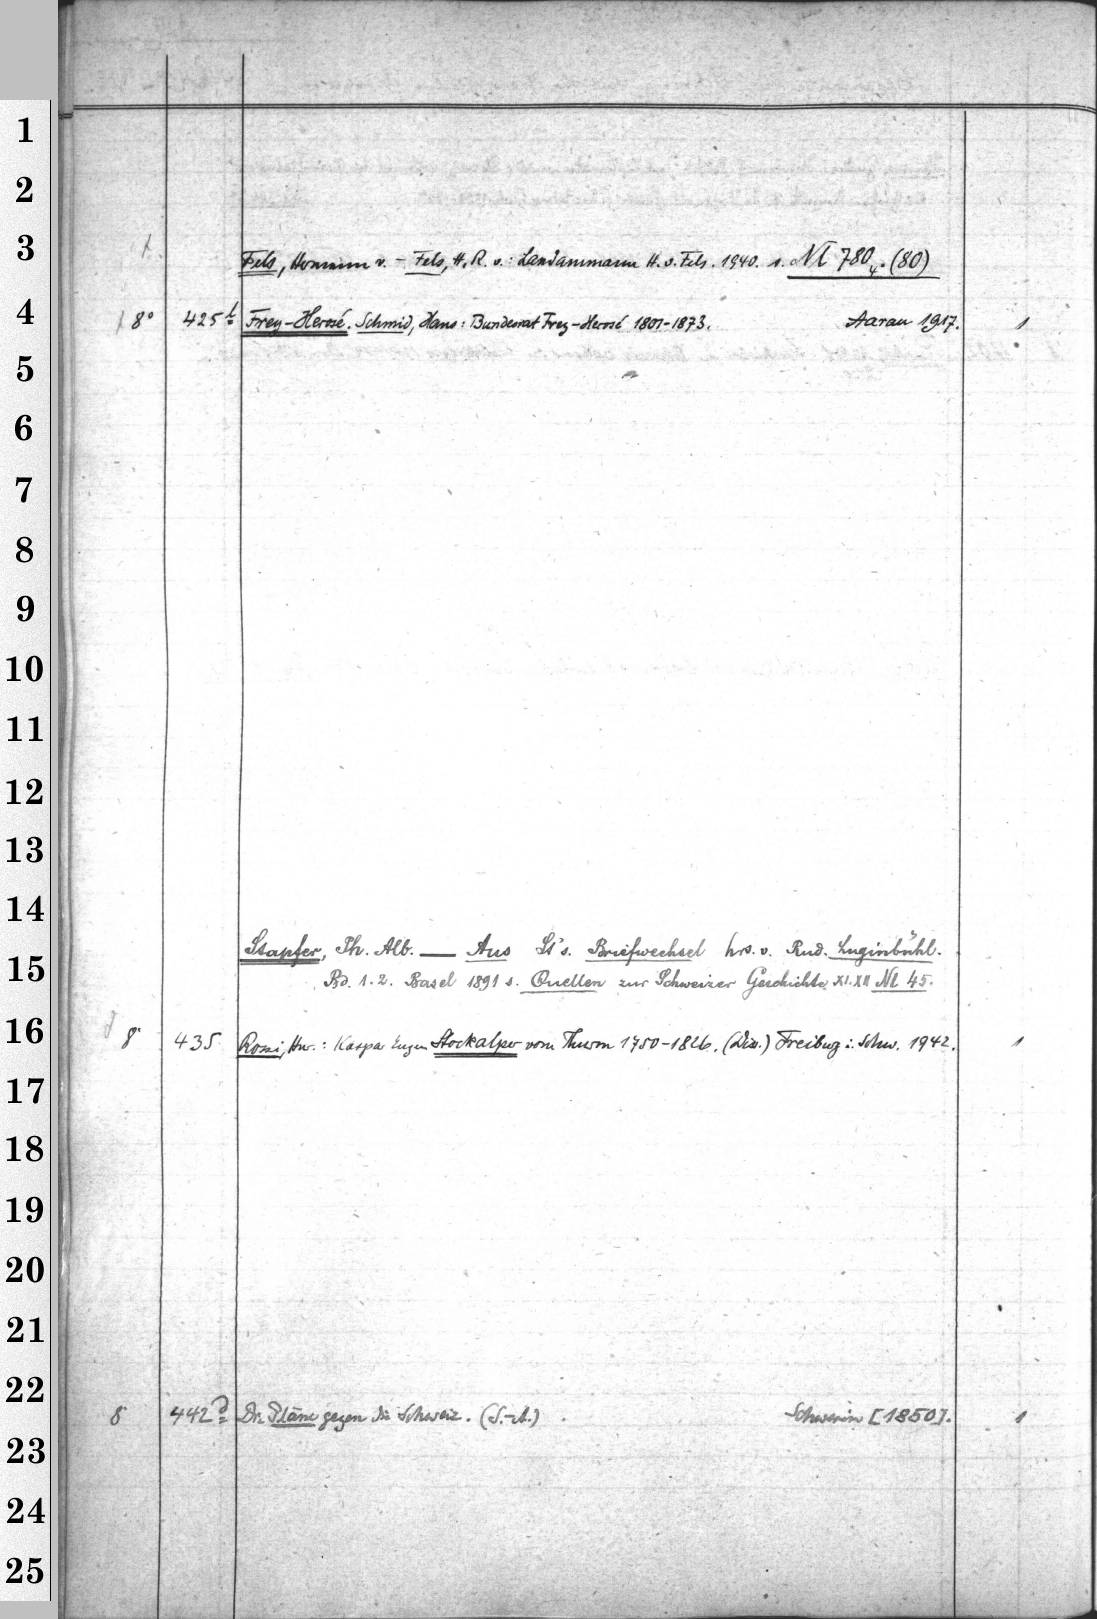 1
2
3
Fels, Hermann v. - Fels, H. R. v.: Landammann H. v. Fels. 1940. s. Nl 780,4. (80)
4
8° 425 Frey-Herosé. Schmid, Hans: Bundesrat Frey-Herosé 1801-1873. Aarau 1917. 1
5
6
7
8
9
10
11
12
13
14
Stapfer, Ph. Alb. — Aus St's. Briefwechsel hrs. v. Rud. Luginbühl.
15
Bd. 1.2. Basel 1891 s. Quellen zur Schweizer Geschichte XI.XII Nl 45.
16
8° 435 Rossi, Hnr.: Kaspar Eugen Stockalper vom Thurm 1750-1826. (Diss.) Freiburg i. Schw. 1942. 1
17
18
19
20
21
22
8 442 d Die Pläne gegen die Schweiz. (S.-A.) Schwerin [1850]. 1
23
24
25